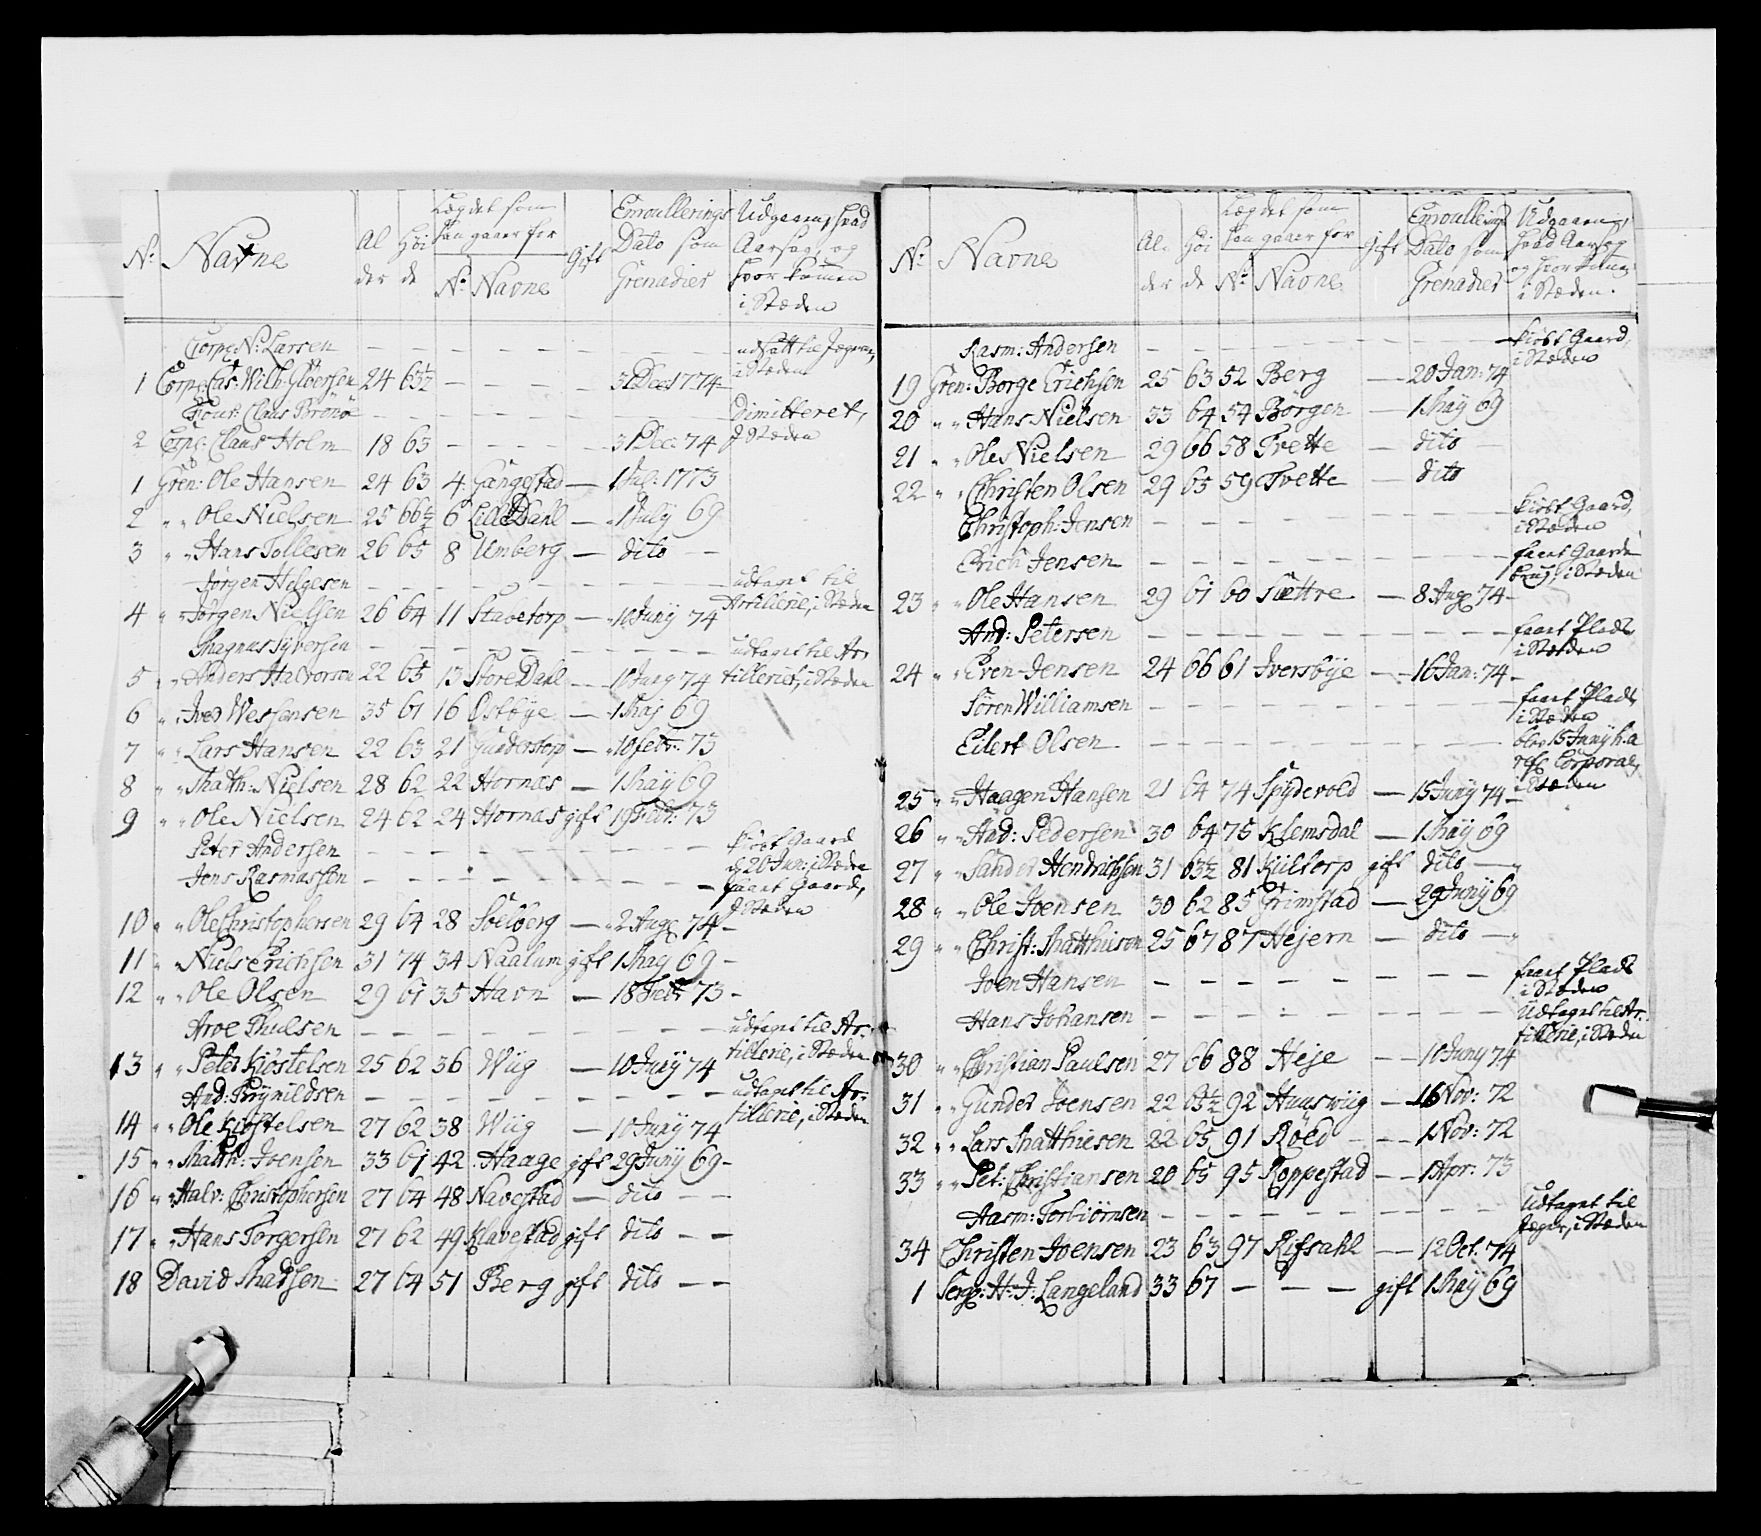 No. Navne Al der Höi de Lægdet som han gaaer for No. Navne Gift Enroullerings Dato som Grenadier Udgaaen, hvad Aarsag, og hvor kommen i Stæden
Corp: N: Larsen — — — — — — — udsatt til Jægerne, i Stæden
1 Corp: Cas: Wilh: Gløersen 24 63½ — — — 31 Dec: 1774 —
Four: Claus Brönöe — — — — — — — Dimitteret, J Stæden
2 Corp: Claus Holm 18 63 — — — 31 Dec: 74
1 Gren: Ole Hansen 24 63 4 Gangestad — 1 Jul: 1773
2 " " Ole Nielsen 25 66½ 6 Lille Dahl — 1 July 69
3 " " Hans Tollesen 26 65 8 Umberg — dito —
Jörgen Helgesen — — — — — — — udtaget til Artillerie, i Stæden
4 " Jörgen Nielsen 26 64 11 Stabetorp — 10 Juny 74
Magnus Syversen — — — — — — — udtaget til Artilleriet, i Stæden
5 " " Anders Halvorsen 22 65 13 Store Dahl — 10 Juny 74
6 " " Iver 35 61 16 Ostbÿe — 1 Maj 69
7 " " Lars Hansen 22 63 21 Gunderstorp — 10 febr: 73
8 " " Math: Nielsen 28 62 22 Hornæs — 1 Maÿ 69
9 " " Ole Nielsen 24 62 24 Hornæs gift 19 Febr: 73
Peter Andersen — — — — — — — kiöbt Gaard d. 20 Jan: i Stæden
Jens Rasmussen — — — — — — — faaet Gaard, J Stæden
10 " " Ole Christophersen 29 64 28 Solberg — 2 Aug: 74 —
11 " " Niels Erichsen 31 74 34 Naalum gift 1 May 69 —
12 " " Ole Olsen 29 61 35 Havn — 18 Febr 73 —
Aroe Poulsen — — — — — — — udtaget til Artillerie, i Stæden
13 " " Peter Kiöstelsen 25 62 36 Wiig — 10 Juny 74
And: Brÿnildsen — — — — — — — udtaget til Artillerie, i Stæden
14 " " Ole Kiöstelsen 27 62 38 Wiig — 10 Juny 74
15 " " Math: Joensen 33 61 42 Haage gift 29 Juny 69 —
16 " " Halv: Christophersen 27 64 48 Navestad — dito — —
17 " " Hans Torgersen 27 62 49 Klavestad gift dito — —
18 David Madsen 27 64 51 Berg gift dito — —
No. Navne Al der Höi de Lægdet som han gaaer for No. Navne gift Enroullerings Dato som Grenadier Udgaaen, hvad Aarsag og hvor kommen i Stæden.
Rasm: Andersen — — — — — — — kiöbt Gaard, i Stæden
19 Gren: Borge Erichsen 25 63 52 Berg — 20 Jan: 74
20 " " Hans Nielsen 33 64 54 Börgen — 1 Maÿ 69
21 " " Ole Nielsen 29 66 58 Tvette — dito —
22 " " Christen Olsen 29 65 59 Tvette — dito
Christoph: Jensen — — — — — — — kiöbt Gaard, i Stæden
Erich Jensen — — — — — — — faaet Gaarde brug, i Stæden
23 " " Ole Hansen 29 61 60 Sættre — 8 Aug 74 —
And: Petersen — — — — — — — faaet Plads i Stæden
24 " " Even Jensen 24 66 61 Iversbÿe — 16 Jan: 74 —
Sören Williamsen — — — — — — — faaet Plads, i Stæden
Eilert Olsen — — — — — — — blev 15 Juny h.a. Corporal, i Stæden
25 " " Haagen Hansen 21 64 74 Spÿdevold — 15 Juny 74 —
26 " " And: Pedersen 30 64 75 Klemsdal — 1 Maÿ 69
27 " " Sander Hendrichsen 31 63½ 81 Kiiltorp gift dito — "
28 " " Ole Joensen 30 62 85 Grimstad — 29 Juny 69
29 " " Christ: Matthiesen 25 67 87 Hejern — dito — "
Joen Hansen — — — — — — — faaet Plads i Stæden
Hans Johansen — — — — — — — Udtaget til Artillerie, i Stæden
30 " " Christian Paulsen 27 66 88 Heje — 10 Juny 74
31 " " Gunder Joensen 22 63½ 92 — 16 Nov: 72
32 " " Lars Matthiesen 22 65 91 Röed — 1 Nov: 72
33 " " Pet: Christiansen 20 65 95 Roppestad — 1 Apr: 73
Aasm: Torbiörnsen — — — — — — — udtaget til Jæger, i Stæden
34 Christen Joensen 23 63 97 Rifsahl — 12 Oct. 74
1 Serg: H: J: Langeland 33 67 — — — gift 1 Maÿ 69